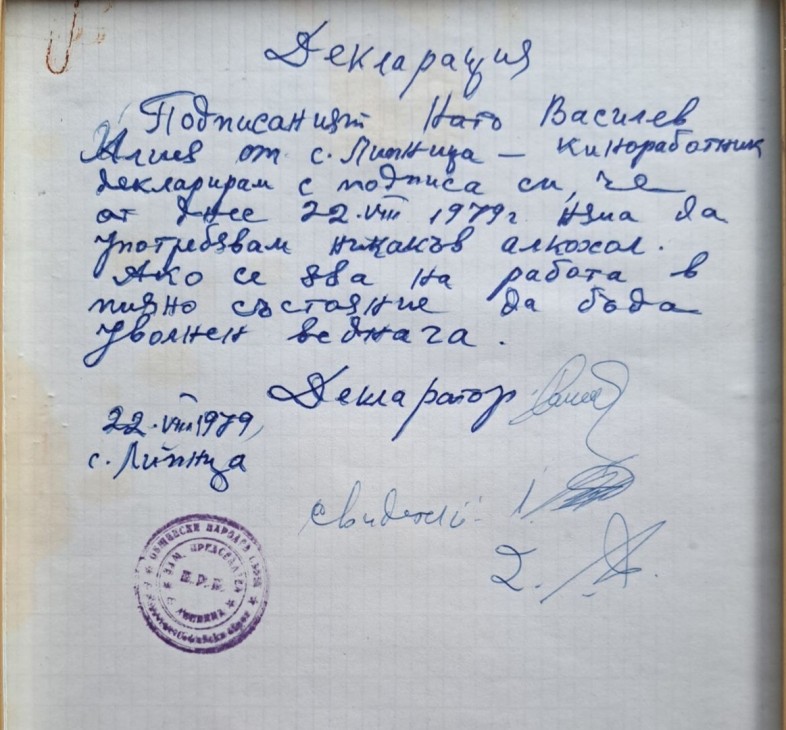 Декларация
Подписаният Нато Василев
Илиев от с. Липница – киноработник
декларирам с подписа си, че
от днес 22.VIII 1979г няма да
употребявам никакъв алкохол.
Ако се ява на работа в
пияно състояние да бъда
уволнен веднага.
Декларатор:
22.VIII 1979,
с. Липница
свидетели: 1.
2.
ОБЩИНСКИ НАРОДЕН СЪВЕТ
ЗАМ. ПРЕДСЕДАТЕЛ
Н.Р.Б.
ЛИПНИЦА